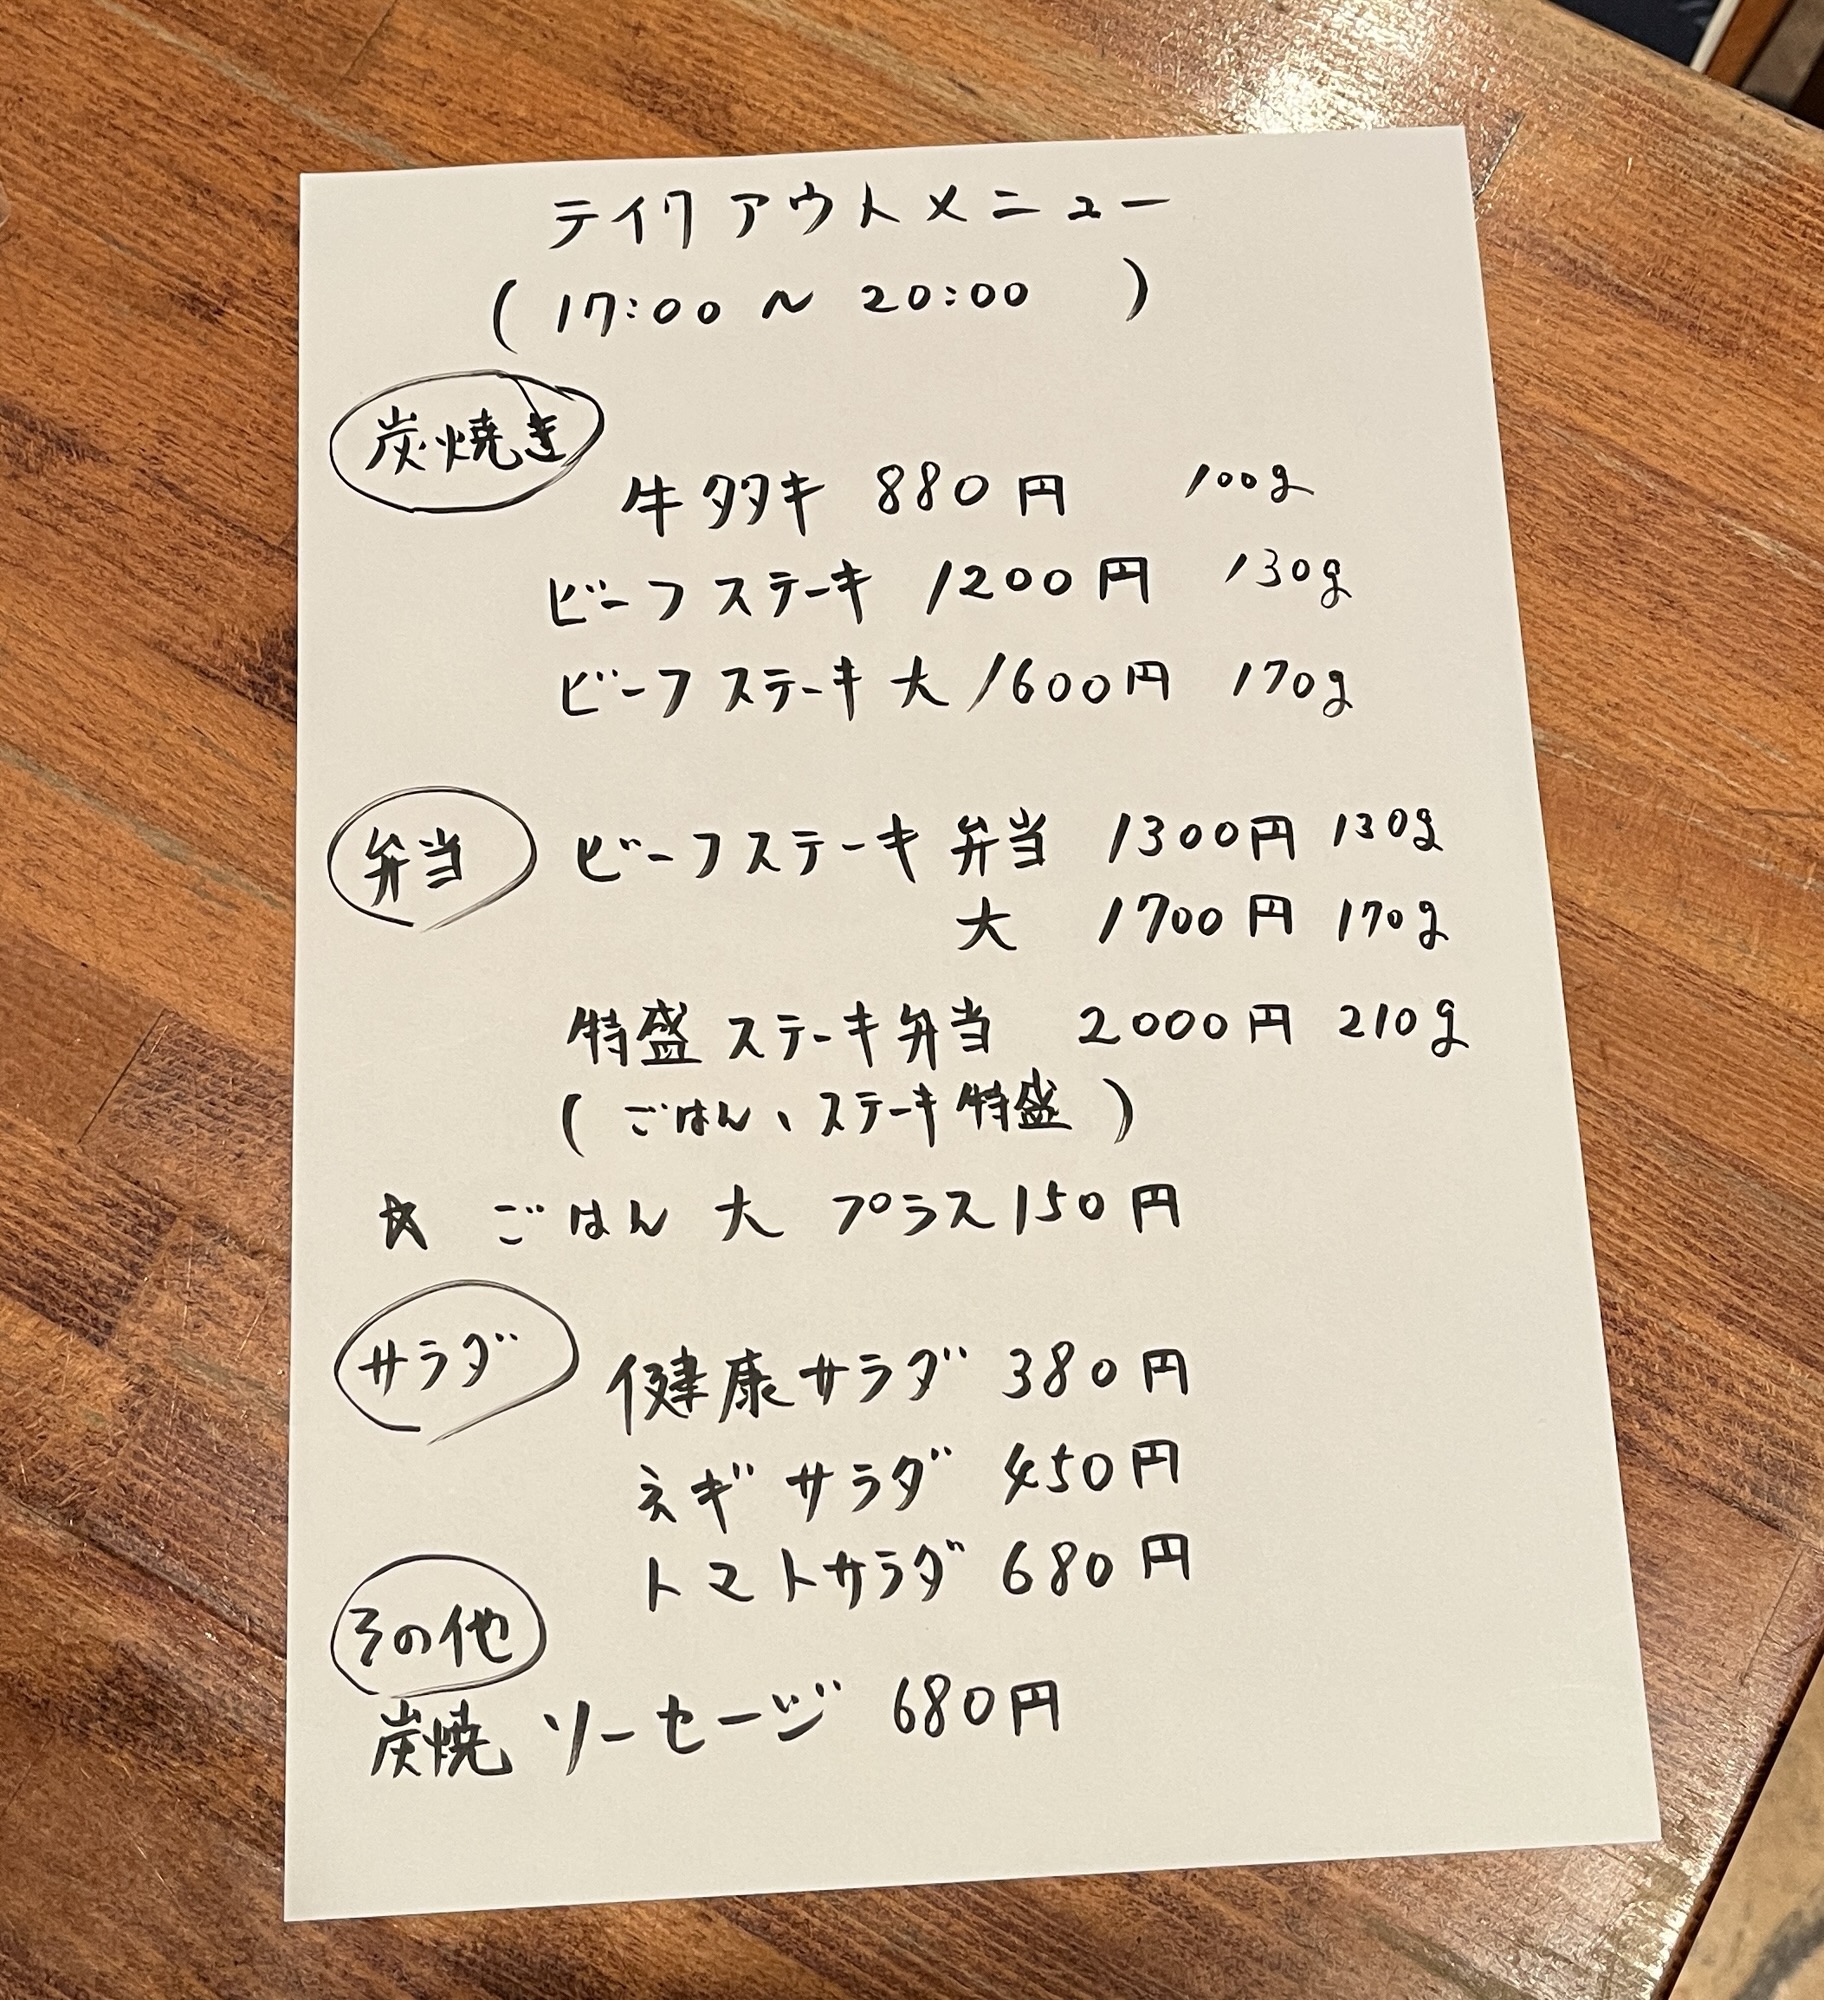 テイクアウトメニュー
(17:00～20:00)
炭焼き
牛タタキ 880円 100g
ビーフステーキ 1200円 130g
ビーフステーキ 大 1600円 170g
弁当 ビーフステーキ 弁当 1300円 130g
大 1700円 170g
特盛 ステーキ弁当 2000円 210g
(ごはん、ステーキ特盛)
☆ ごはん 大 プラス150円
サラダ 健康サラダ 380円
ネギ サラダ 450円
トマトサラダ 680円
その他
炭焼 ソーセージ 680円